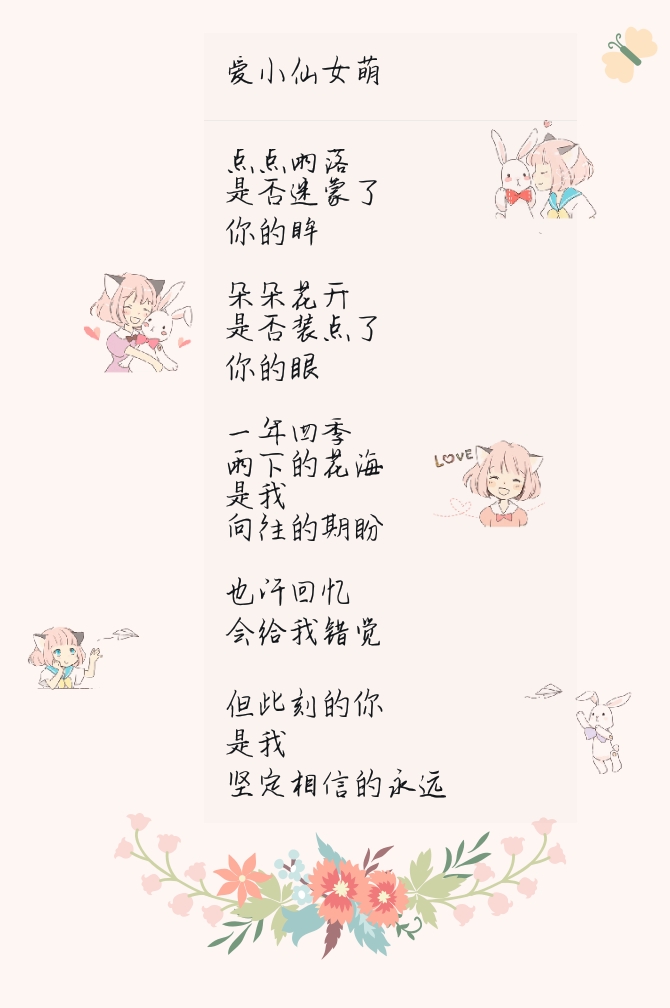 爱小仙女萌
点点雨落
是否迷蒙了
你的眸
朵朵花开
是否装点了
你的眼
一年四季
雨下的花海
是我
向往的期盼
LOVE
也许回忆
会给我错觉
但此刻的你
是我
坚定相信的永远